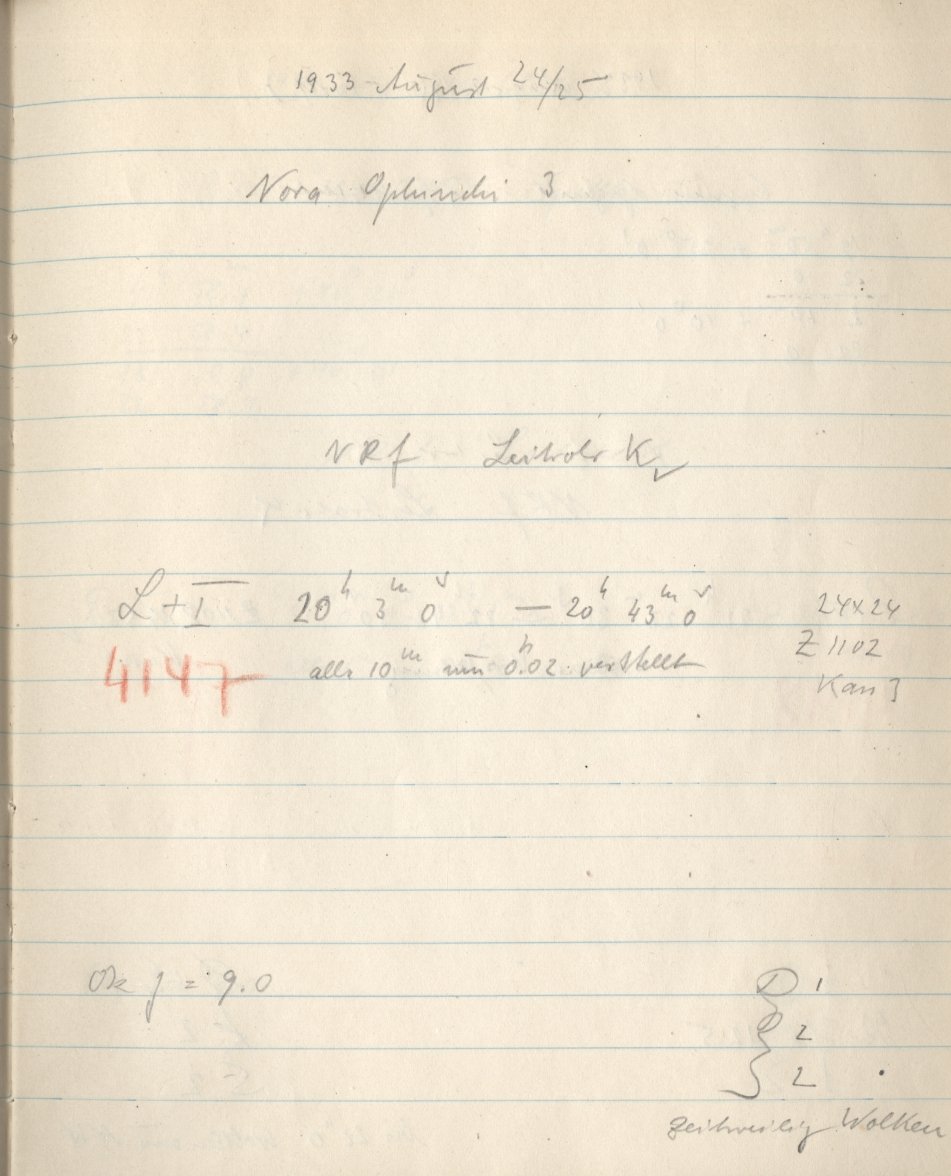 1933 August 24/25
Nova Ophiuchi 3
NRf Leitrohr K
L + I 20h 3m 0s — 20h 43m 0s 24x24
4147 alle 10m um 0.02 verstellt Z 1102
Kass 3
Ok f = 9.0
D 1
2
2
zeitweilig Wolken